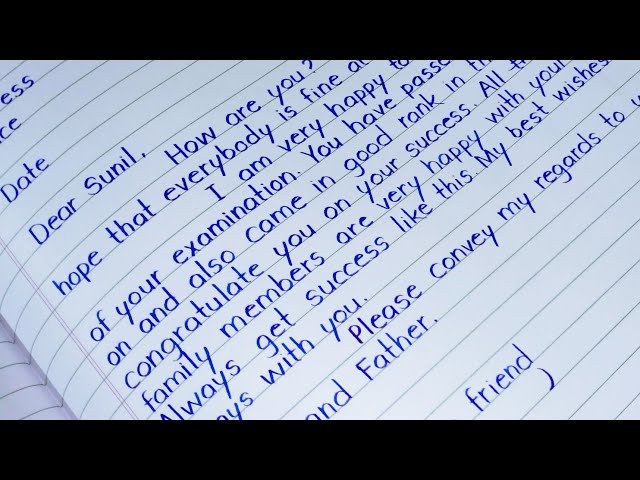 ess
ce
Date
Dear Sunil,
How are you?
hope that everybody is fine a
I am very happy to
of your examination. You have passe
on and also came in good rank in th
congratulate you on your success. All th
family members are very happy with your
Always get success like this. My best wishes
ays with you. Please convey my regards to y
and Father.
friend